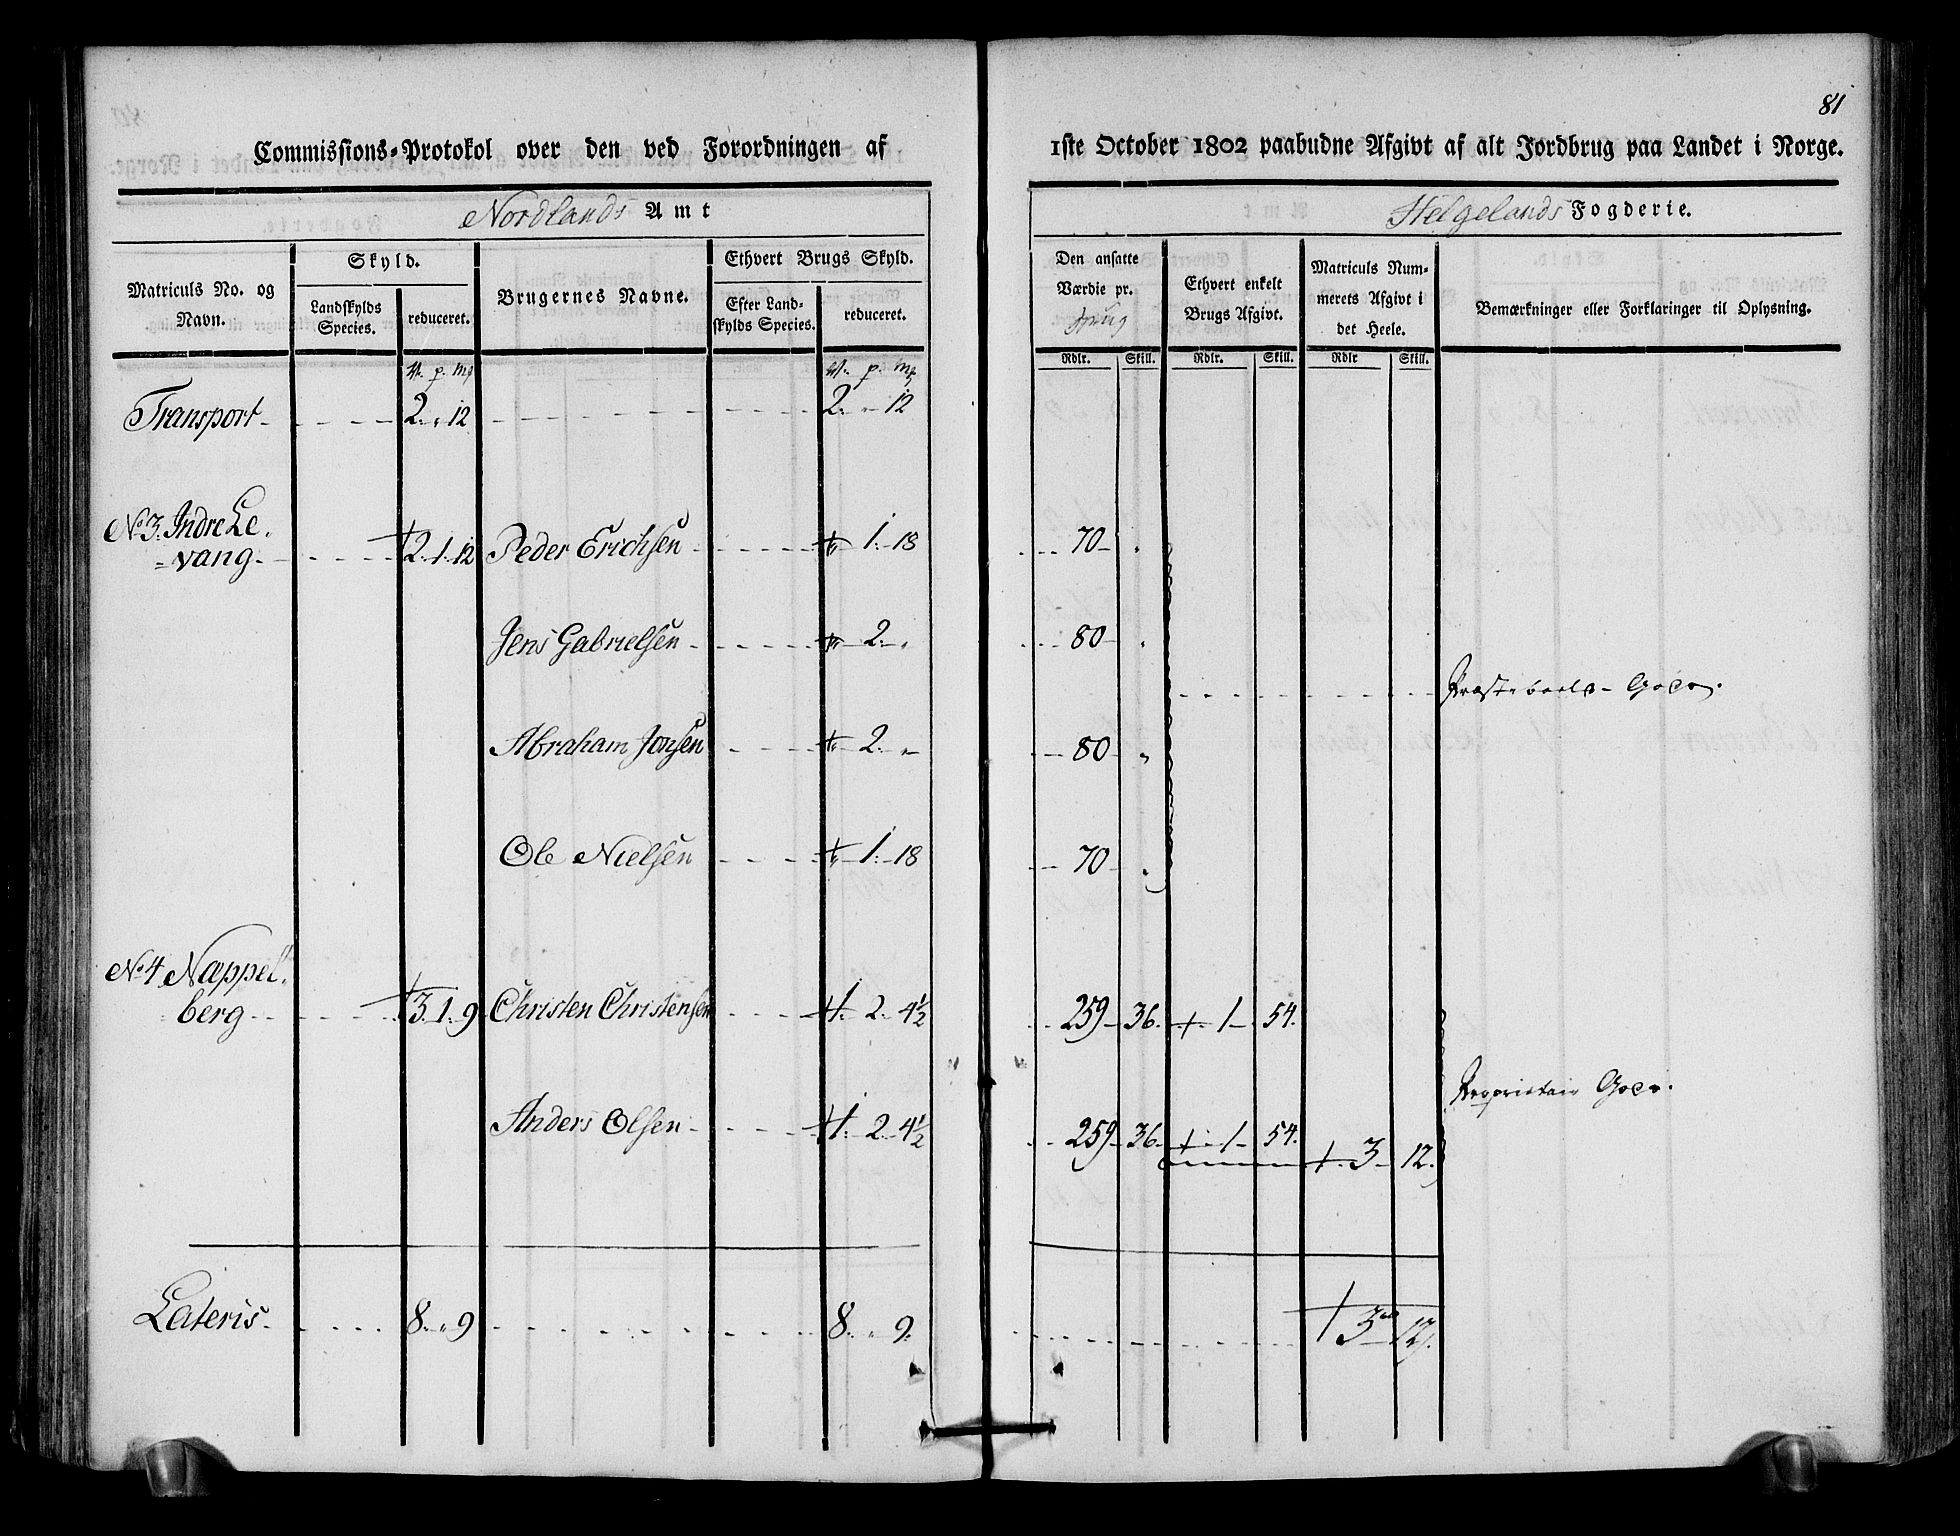 81
Commissions-Protokol over den ved Forordningen af 1ste October 1802 paabudne Afgivt af alt Jordbrug paa Landet i Norge.
Nordlands Amt
Helgelands Fogderie.
Matriculs No. og Navn.
Skyld.
Landskylds Species.
reduceret.
Brugernes Navne.
Ethvert Brugs Skyld.
Efter Landskylds Species.
reduceret.
Den ansatte Værdie pr.
Ethvert enkelt Brugs Afgivt.
Matriculs Nummerets Afgivt i det Heele.
Bemærkninger eller Forklaringer til Oplysning.
Rdlr. Skill. Rdlr. Skill. Rdlr Skill.
p. mk p. mk
Transport - 2. " 12 - 2. " 12
No 3. Indre Le-
=vang - 2. 1. 12 Peder Erichsen - " 1. 18 70 "
Jens Gabrielsen - " 2. " 80 "
Præsteboels Gods.
Abraham Jonsen - " 2. " 80 "
Ole Nielsen - " 1. 18 70 "
No 4 Næppel-
berg - 3. 1. 9 Christen Christensen - 1. 2. 4½ 259 36. 1 54.
Proprietair Gods.
Anders Olsen - 1. 2. 4½ 259 36. 1 54. 3 12.
Lateris - 8. " 9 - 8. " 9. 3 12.